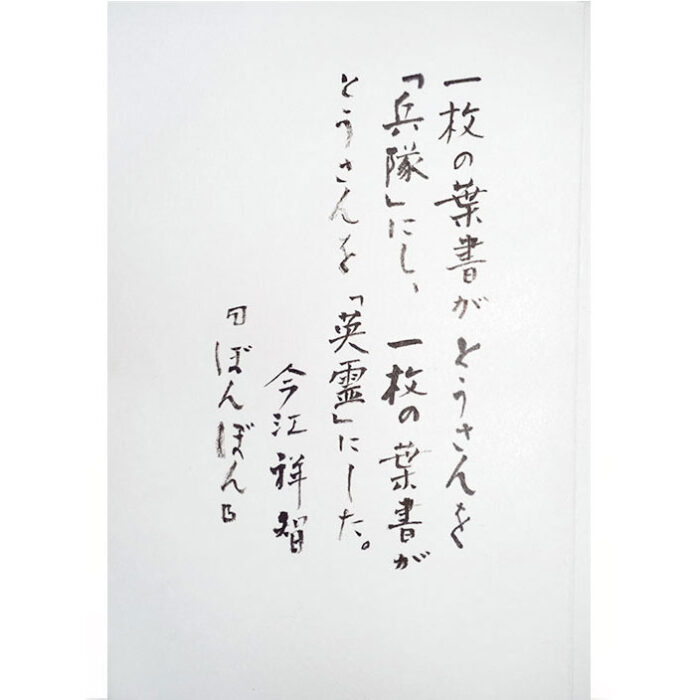 一枚の葉書がとうさんを
「兵隊」にし、一枚の葉書が
とうさんを「英霊」にした。
今江祥智
『ぼんぼん』